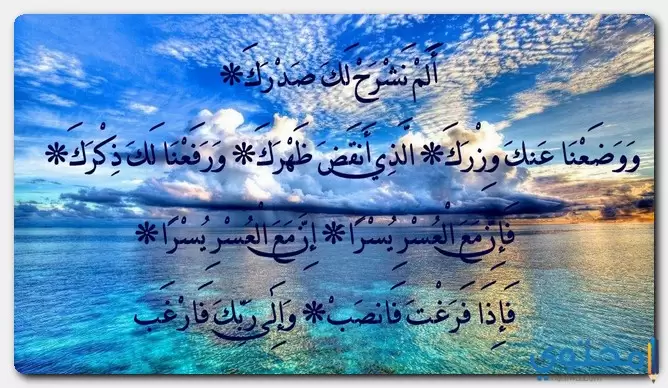 أَلَمْ نَشْرَحْ لَكَ صَدْرَكَ *
وَوَضَعْنَا عَنكَ وِزْرَكَ * الَّذِي أَنقَضَ ظَهْرَكَ * وَرَفَعْنَا لَكَ ذِكْرَكَ *
فَإِنَّ مَعَ الْعُسْرِ يُسْرًا * إِنَّ مَعَ الْعُسْرِ يُسْرًا *
فَإِذَا فَرَغْتَ فَانصَبْ * وَإِلَى رَبِّكَ فَارْغَب
محتوى